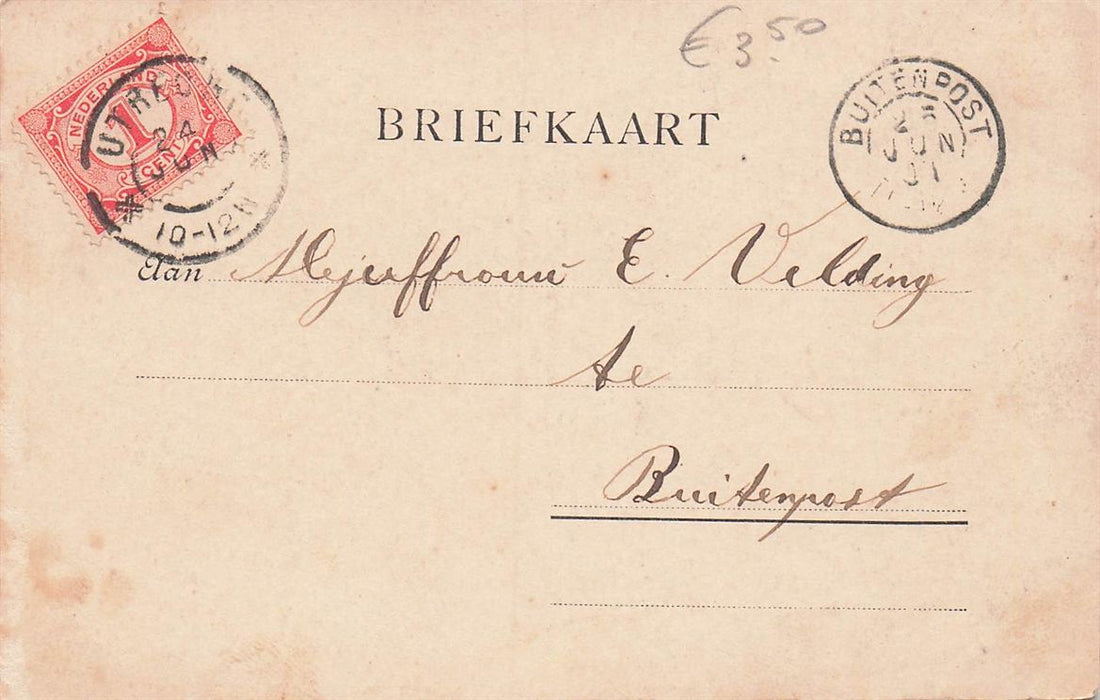 € 3.50
NEDERLAND
1
CENT
UTRECHT
24
JUN
10-12N
BUITENPOST
25
JUN
01
BRIEFKAART
Aan Mejuffrouw E. Velding
te
Buitenpost